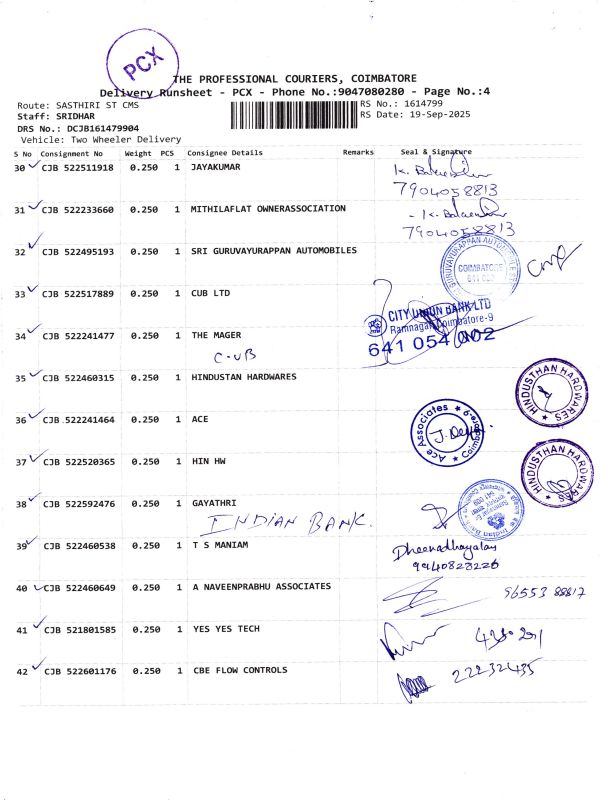 PCX
THE PROFESSIONAL COURIERS, COIMBATORE
Delivery Runsheet - PCX - Phone No.:9047080280 - Page No.:4
Route: SASTHIRI ST CMS
RS No.: 1614799
Staff: SRIDHAR
RS Date: 19-Sep-2025
DRS No.: DCJB161479904
Vehicle: Two Wheeler Delivery
S No Consignment No Weight PCS Consignee Details Remarks Seal & Signature
30 CJB 522511918 0.250 1 JAYAKUMAR
7904058813
31 CJB 522233660 0.250 1 MITHILAFLAT OWNERASSOCIATION
7904058813
32 CJB 522495193 0.250 1 SRI GURUVAYURAPPAN AUTOMOBILES
GURUVAYURAPPAN
COIMBATORE
33 CJB 522517889 0.250 1 CUB LTD
CITY UNION BANK LTD
Ramnagar, Coimbatore-9
34 CJB 522241477 0.250 1 THE MAGER
641 054 002
C-UB
35 CJB 522460315 0.250 1 HINDUSTAN HARDWARES
HINDUSTHAN HARDWARES
36 CJB 522241464 0.250 1 ACE
Ace Associates
37 CJB 522520365 0.250 1 HIN HW
HINDUSTHAN HARDWARES
38 CJB 522592476 0.250 1 GAYATHRI
INDIAN BANK.
39 CJB 522460538 0.250 1 T S MANIAM
Dheenadhayalan
9940828226
40 CJB 522460649 0.250 1 A NAVEENPRABHU ASSOCIATES
96553 88817
41 CJB 521801585 0.250 1 YES YES TECH
42 CJB 522601176 0.250 1 CBE FLOW CONTROLS
22232435